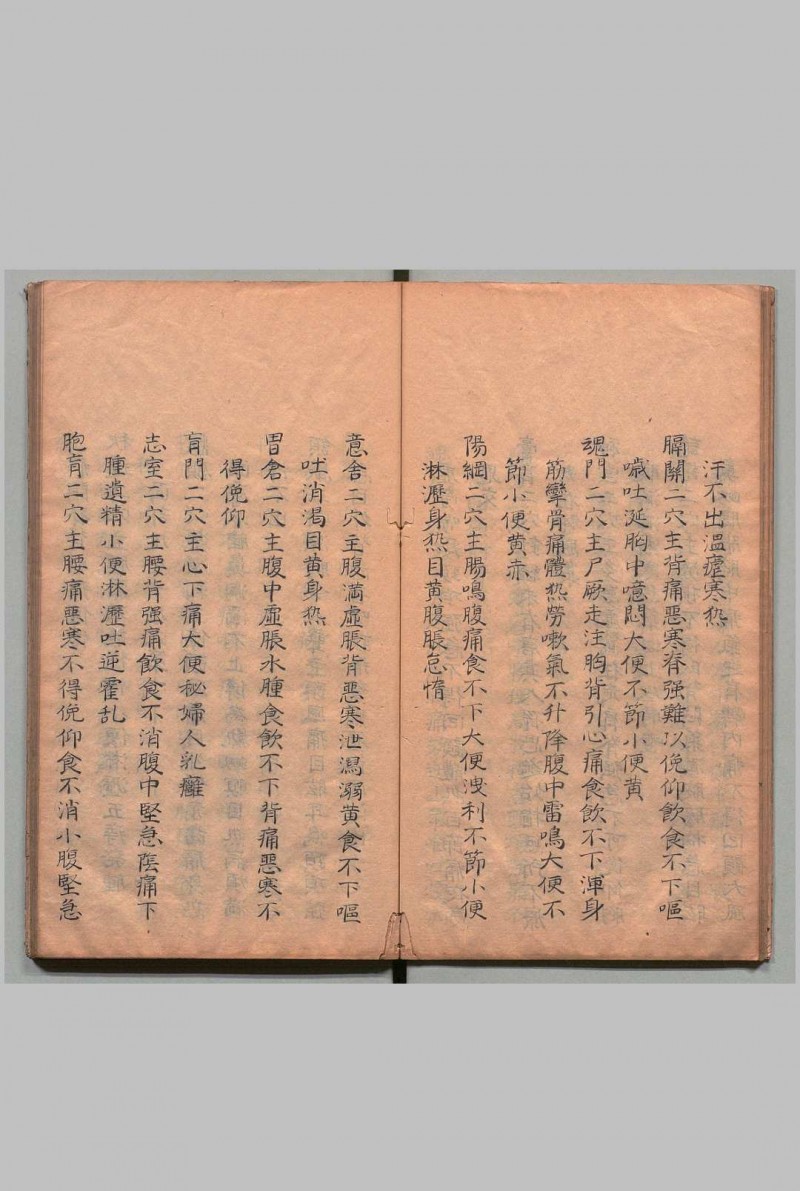 汗不出溫瘧寒热
膈關二穴主背痛惡寒脊强難以俛仰飲食不下嘔
噦吐涎胸中噫悶大便不節小便黄
魂門二穴主尸厥走注胸背引心痛食飲不下渾身
筋攣骨痛體热勞嗽氣不升降腹中雷鳴大便不
節小便黄赤
陽綱二穴主腸鳴腹痛食不下大便洩利不節小便
淋瀝身热目黄腹脹怠惰
意舍二穴主腹満虛脹背惡寒泄瀉溺黄食不下嘔
吐消渴目黄身热
胃倉二穴主腹中虛脹水腫食飲不下背痛惡寒不
得俛仰
肓門二穴主心下痛大便秘婦人乳癰
志室二穴主腰背强痛飲食不消腹中堅急蔭痛下
腫遺精小便淋瀝吐逆霍乱
胞肓二穴主腰痛惡寒不得俛仰食不消小腹堅急